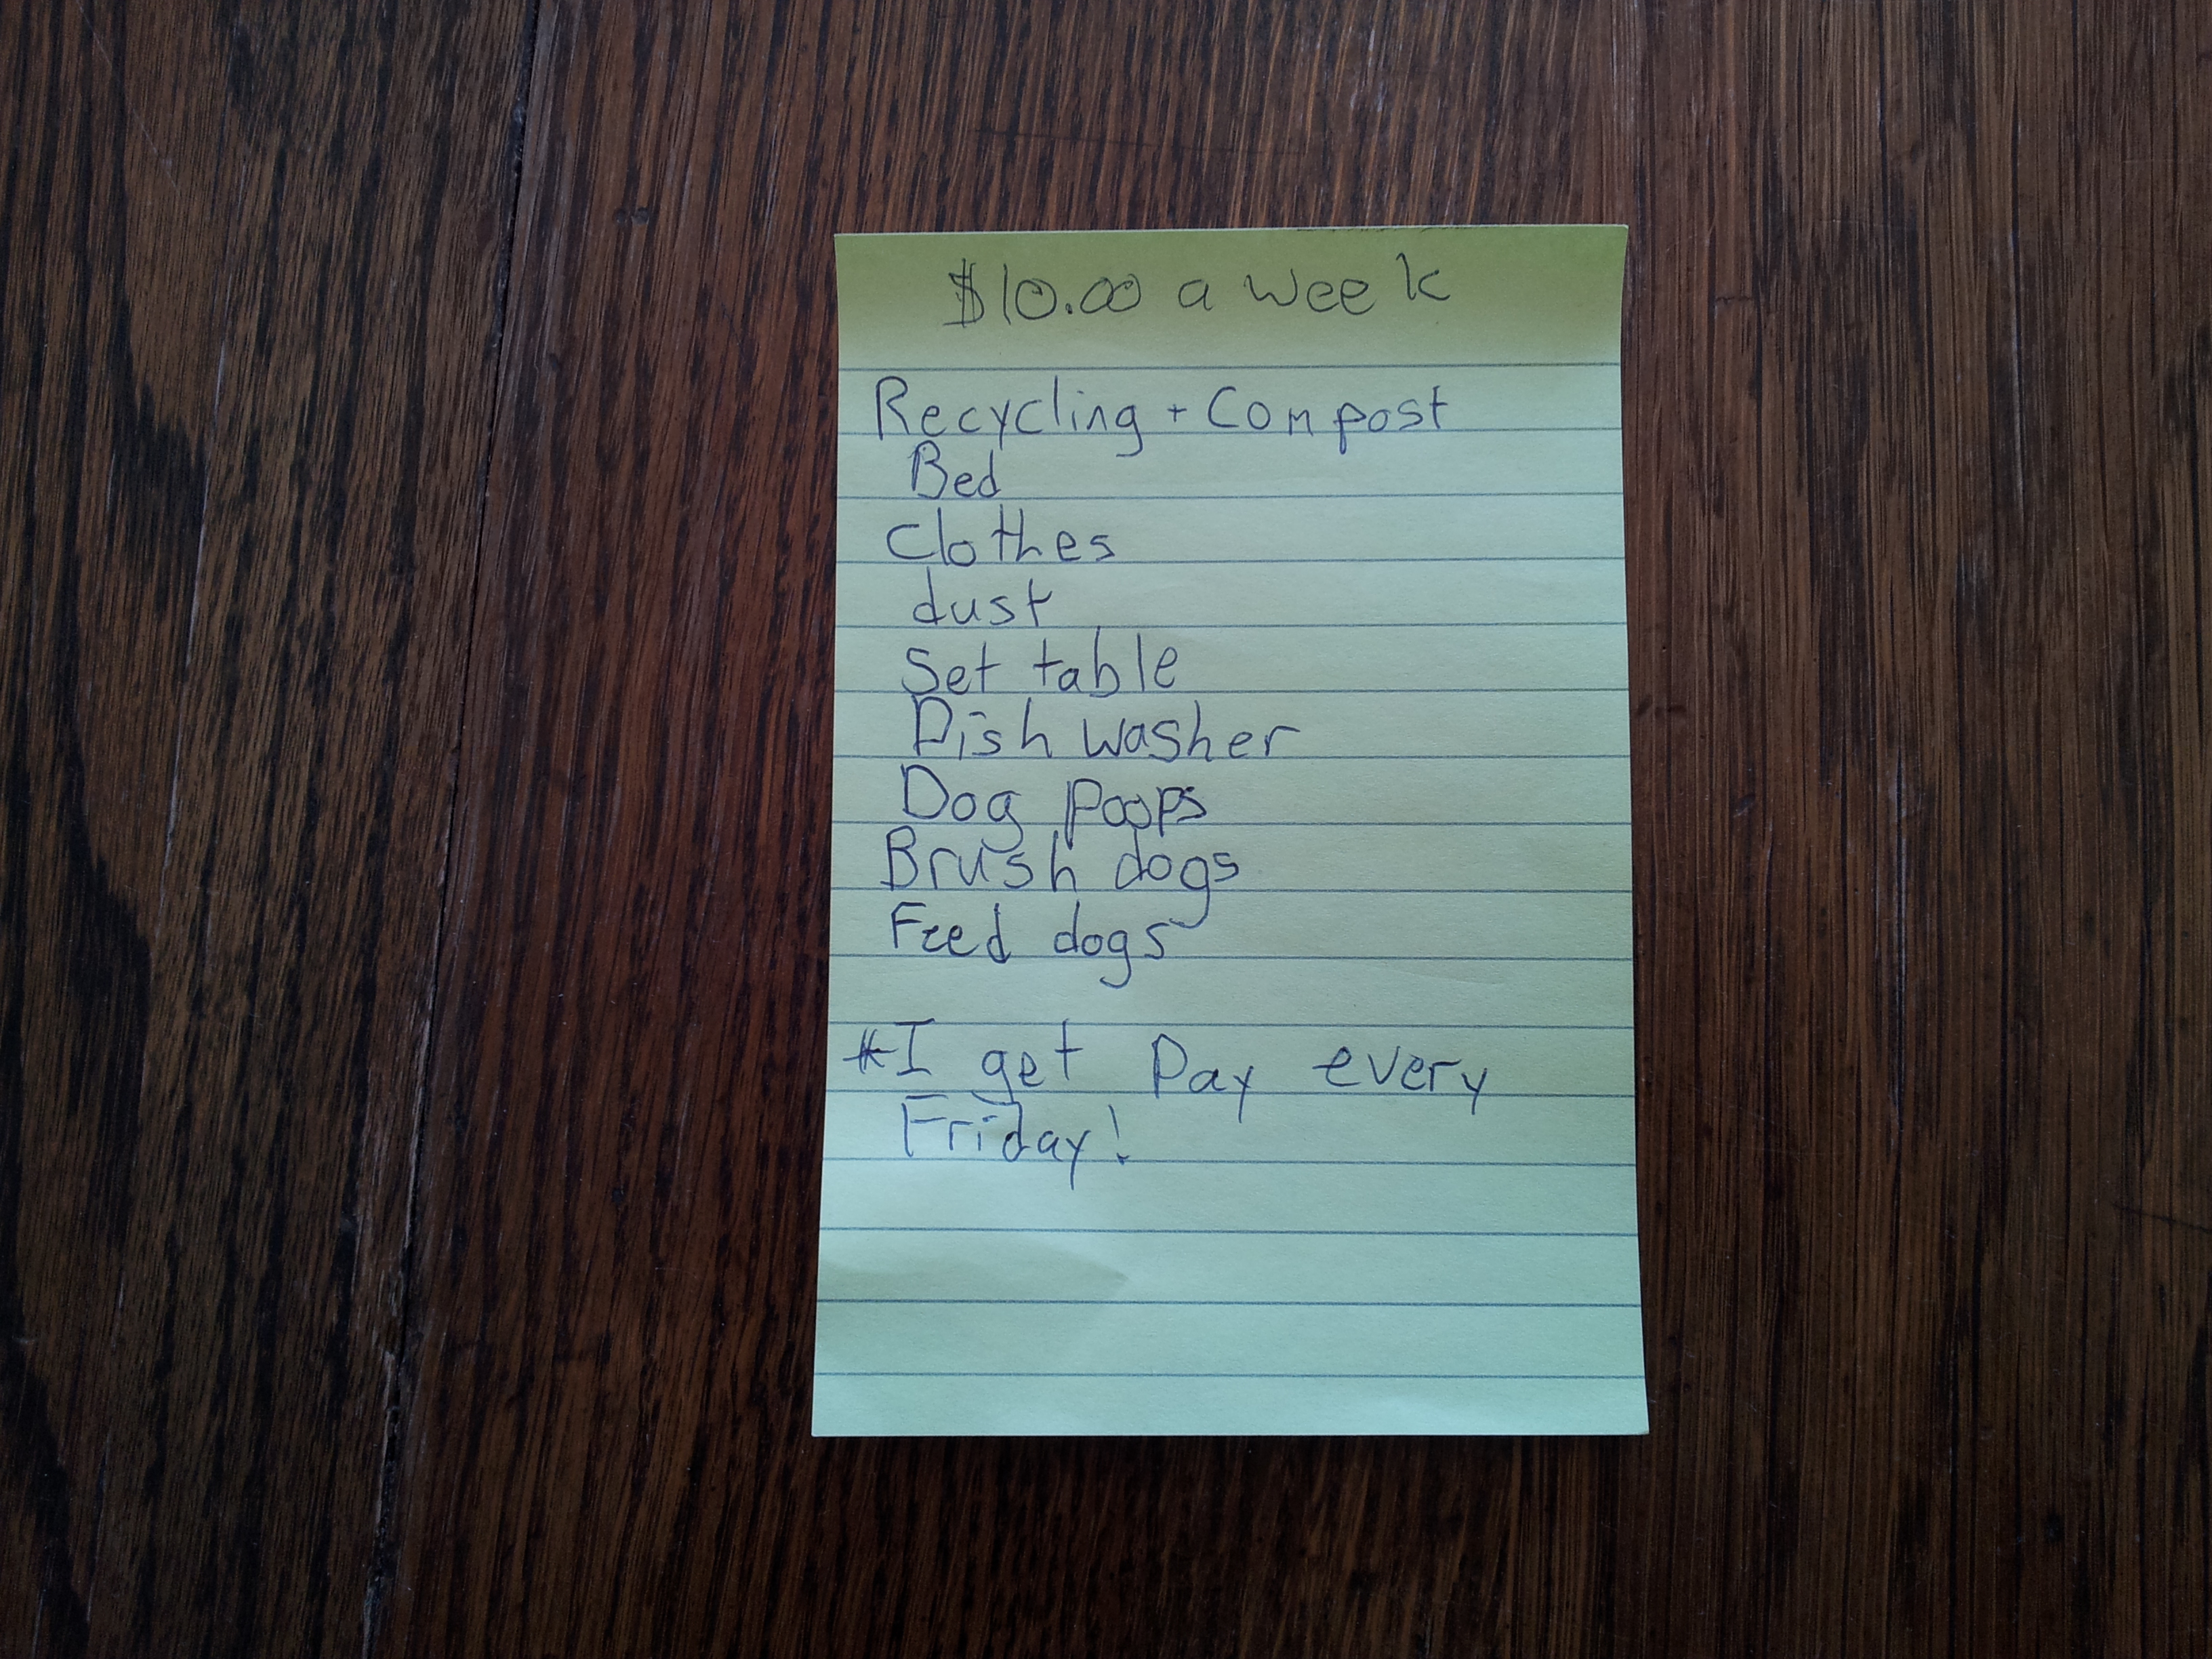 $10.00 a week
Recycling + Compost
Bed
Clothes
dust
Set table
Dish washer
Dog poops
Brush dogs
Feed dogs
*I get Pay every
Friday!